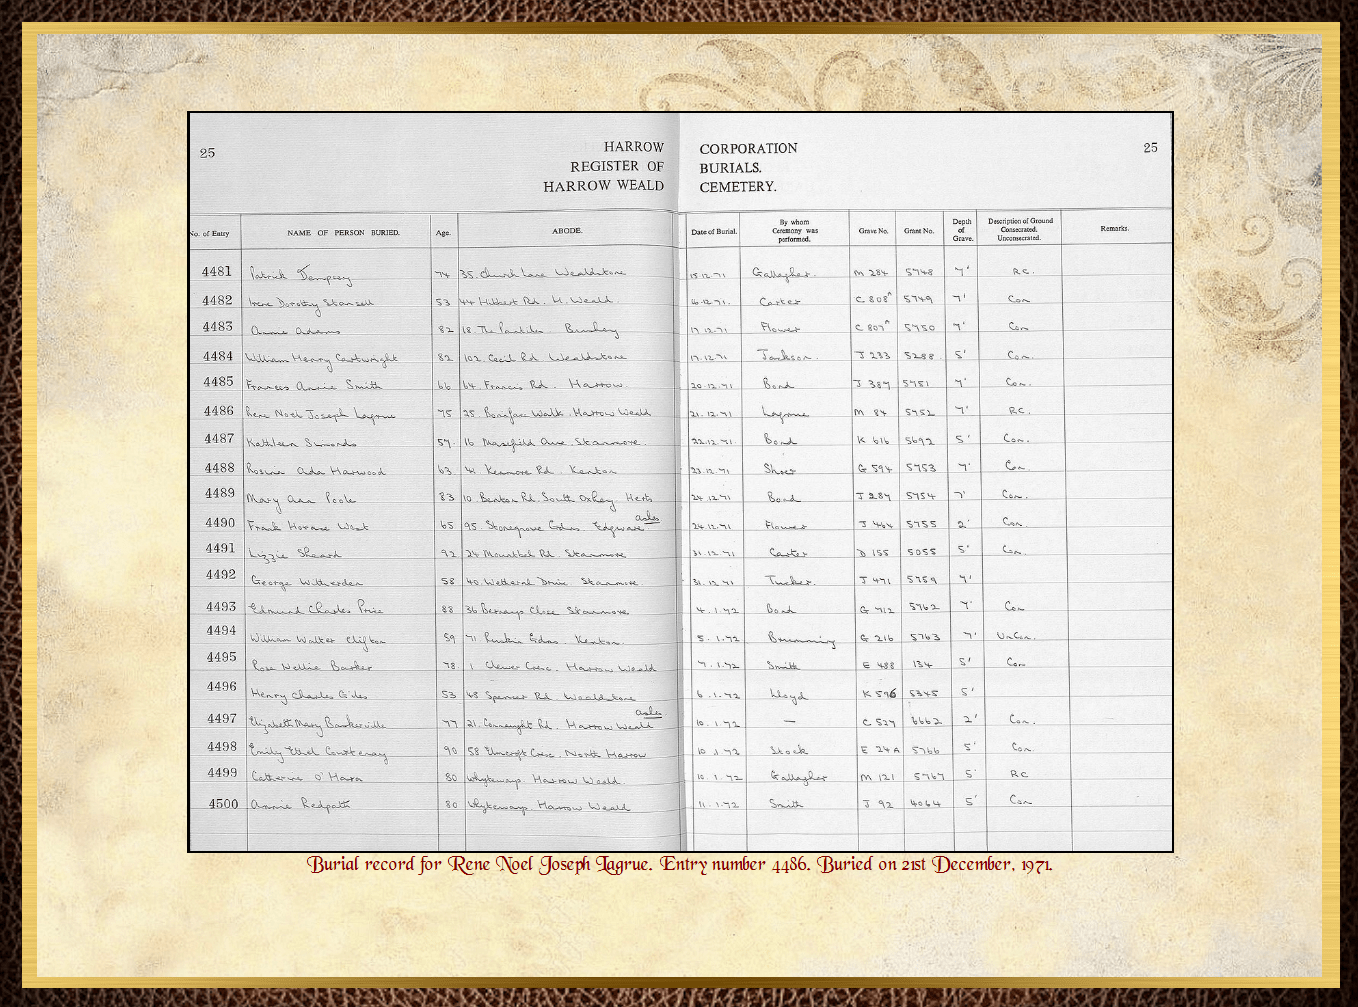 25 HARROW CORPORATION 25
REGISTER OF BURIALS.
HARROW WEALD CEMETERY.
No. of Entry NAME OF PERSON BURIED. Age. ABODE. Date of Burial. By whom Ceremony was performed. Grave No. Grant No. Depth of Grave. Description of Ground Consecrated. Unconsecrated. Remarks.
4481 Patrick Dempsey 74 35. Church Lane Wealdstone 15.12.71 Gallagher. M 284 5748 7' R.C.
4482 Irene Dorothy Stansell 53 44 Hibbert Rd. H. Weald. 16.12.71. Carter C 808A 5749 7' Con
4483 Annie Adams 82 18 The Pantiles. Bushey 17.12.71 Flower C 807A 5750 7' Con
4484 William Henry Cartwright 82 102. Cecil Rd Wealdstone 17.12.71 Jackson. J 233 5288. 5' Con.
4485 Frances Annie Smith 66 64. Francis Rd. Harrow. 20.12.71 Bond J 387 5751 7' Con.
4486 Rene Noel Joseph Lagrue 75 25. Boniface Walk. Harrow Weald 21.12.71 Lagrue M 84 5752 7' R.C.
4487 Kathleen Simonds 57. 16 Masefield Ave. Stanmore. 22.12.71. Bond K 616 5692 5' Con.
4488 Rosina Ada Harwood 63 41. Kenmore Rd. Kenton 23.12.71 G 594 5753 7' Con
4489 Mary Ann Poole 83 10. Benton Rd. South Oxhey. Herts 24.12.71 Bond J 287 5754 7' Con.
4490 Frank Horace West 65 95. Stonegrove Gdns. Edgware ashes 24.12.71 Flower J 464 5755 2' Con.
4491 Lizzie Sheard 92 24 Mountbel Rd Stanmore 31.12.71 Carter D 155 5055 5' Con.
4492 George Witherden 58 40. Wetheral Drive Stanmore. 31.12.71 Tucker. J 471 5759 7'
4493 Edmund Charles Price 88 36 Bernays Close Stanmore. 4.1.72 Bond G 712 5762 7' Con
4494 William Walter Clifton 59 71 Ruskin Gdns. Kenton. 5.1.72 Brumming G 216 5763 7' UnCon.
4495 Rose Nellie Barker 78. 1 Clewer Cresc. Harrow Weald 7.1.72 Smith E 488 134 5' Con
4496 Henry Charles Giles 53 48 Spencer Rd Wealdstone 6.1.72 Lloyd K 596 5345 5'
4497 Elizabeth Mary Baskerville 77 21. Connaught Rd. Harrow Weald ashes 10.1.72 — C 527 6662 2' Con.
4498 Emily Ethel Courtenay 90 58 Elmcroft Cresc. North Harrow 10.1.72 Stock E 24A 5766 5' Con
4499 Catherine O'Hara 80 Whyteways. Harrow Weald. 10.1.72 Gallagher M 121 5767 5' R.C
4500 Annie Redpath 80 Whyteways Harrow Weald 11.1.72 Smith J 92 4064 5' Con
Burial record for Rene Noel Joseph Lagrue. Entry number 4486. Buried on 21st December, 1971.